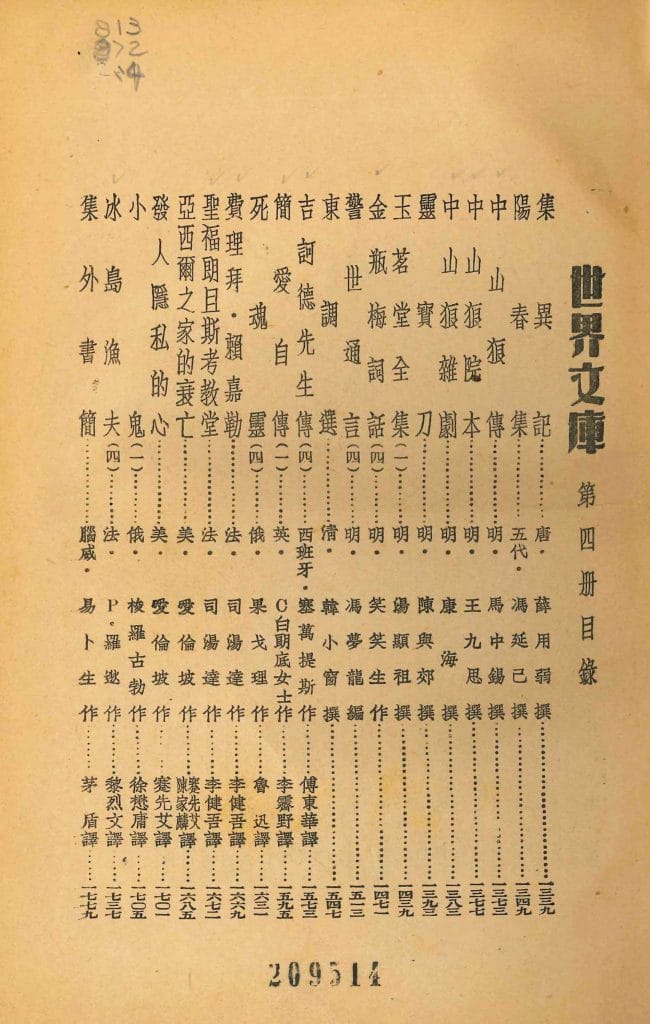 813
世界文庫 第四册目錄
集異記……唐·薛用弱撰……一三三九
陽春集……五代·馮延己撰……一三四九
中山狼傳……明·馬中錫撰……一三七三
中山狼院本……明·王九思撰……一三七七
中山狼雜劇……明·康海撰……一三八三
靈寶刀……明·陳與郊撰……一三九三
玉茗堂全集(一)……明·湯顯祖撰……一四三九
金瓶梅詞話(四)……明·笑笑生作……一四七一
警世通言(四)……明·馮夢龍編……一五一三
東調選……清·韓小窗撰……一五四七
吉訶德先生傳(四)……西班牙·塞萬提斯作……傅東華譯……一五七三
簡愛自傳(一)……英·C白朗底女士作……李霽野譯……一五九五
死魂靈(四)……俄·果戈理作……魯迅譯……一六三一
費理拜·賴嘉勒……法·司湯達作……李健吾譯……一六六九
聖福朗且斯考教堂……法·司湯達作……李健吾譯……一六七二
亞西爾之家的衰亡……美·愛倫坡作……蹇先艾陳家麟譯……一六八五
發人隱私的心……美·愛倫坡作……蹇先艾譯……一七〇一
小鬼(一)……俄·梭羅古勃作……徐懋庸譯……一七〇五
冰島漁夫(四)……法·P.羅逖作……黎烈文譯……一七三七
集外書簡……腦威·易卜生作……茅盾譯……一七七九
209514